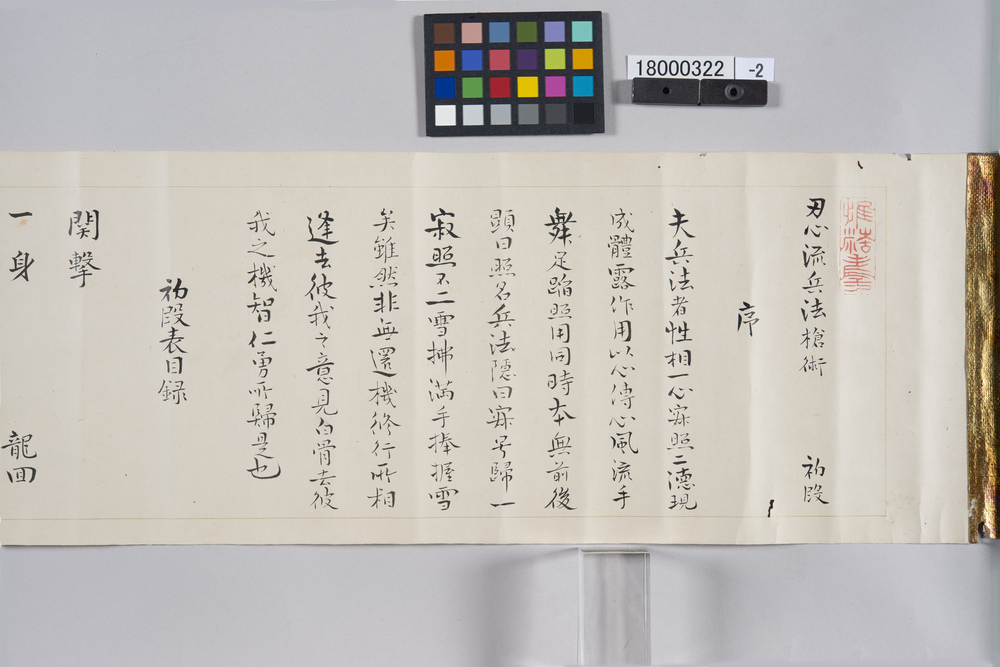 18000322 -2
刃心流兵法槍術 初段
序
夫兵法者性相一心寂照二德現
成體露作用以心傳心風流手
舞足蹈照用同時本無前後
顕曰照名兵法隠曰寂号歸一
寂照不二雪拂滿手捧握雪
矣雖然非無還機修行所相
逢去彼我之意見白骨去彼
我之機智仁勇所歸是也
初段表目録
関撃
一身 龍回